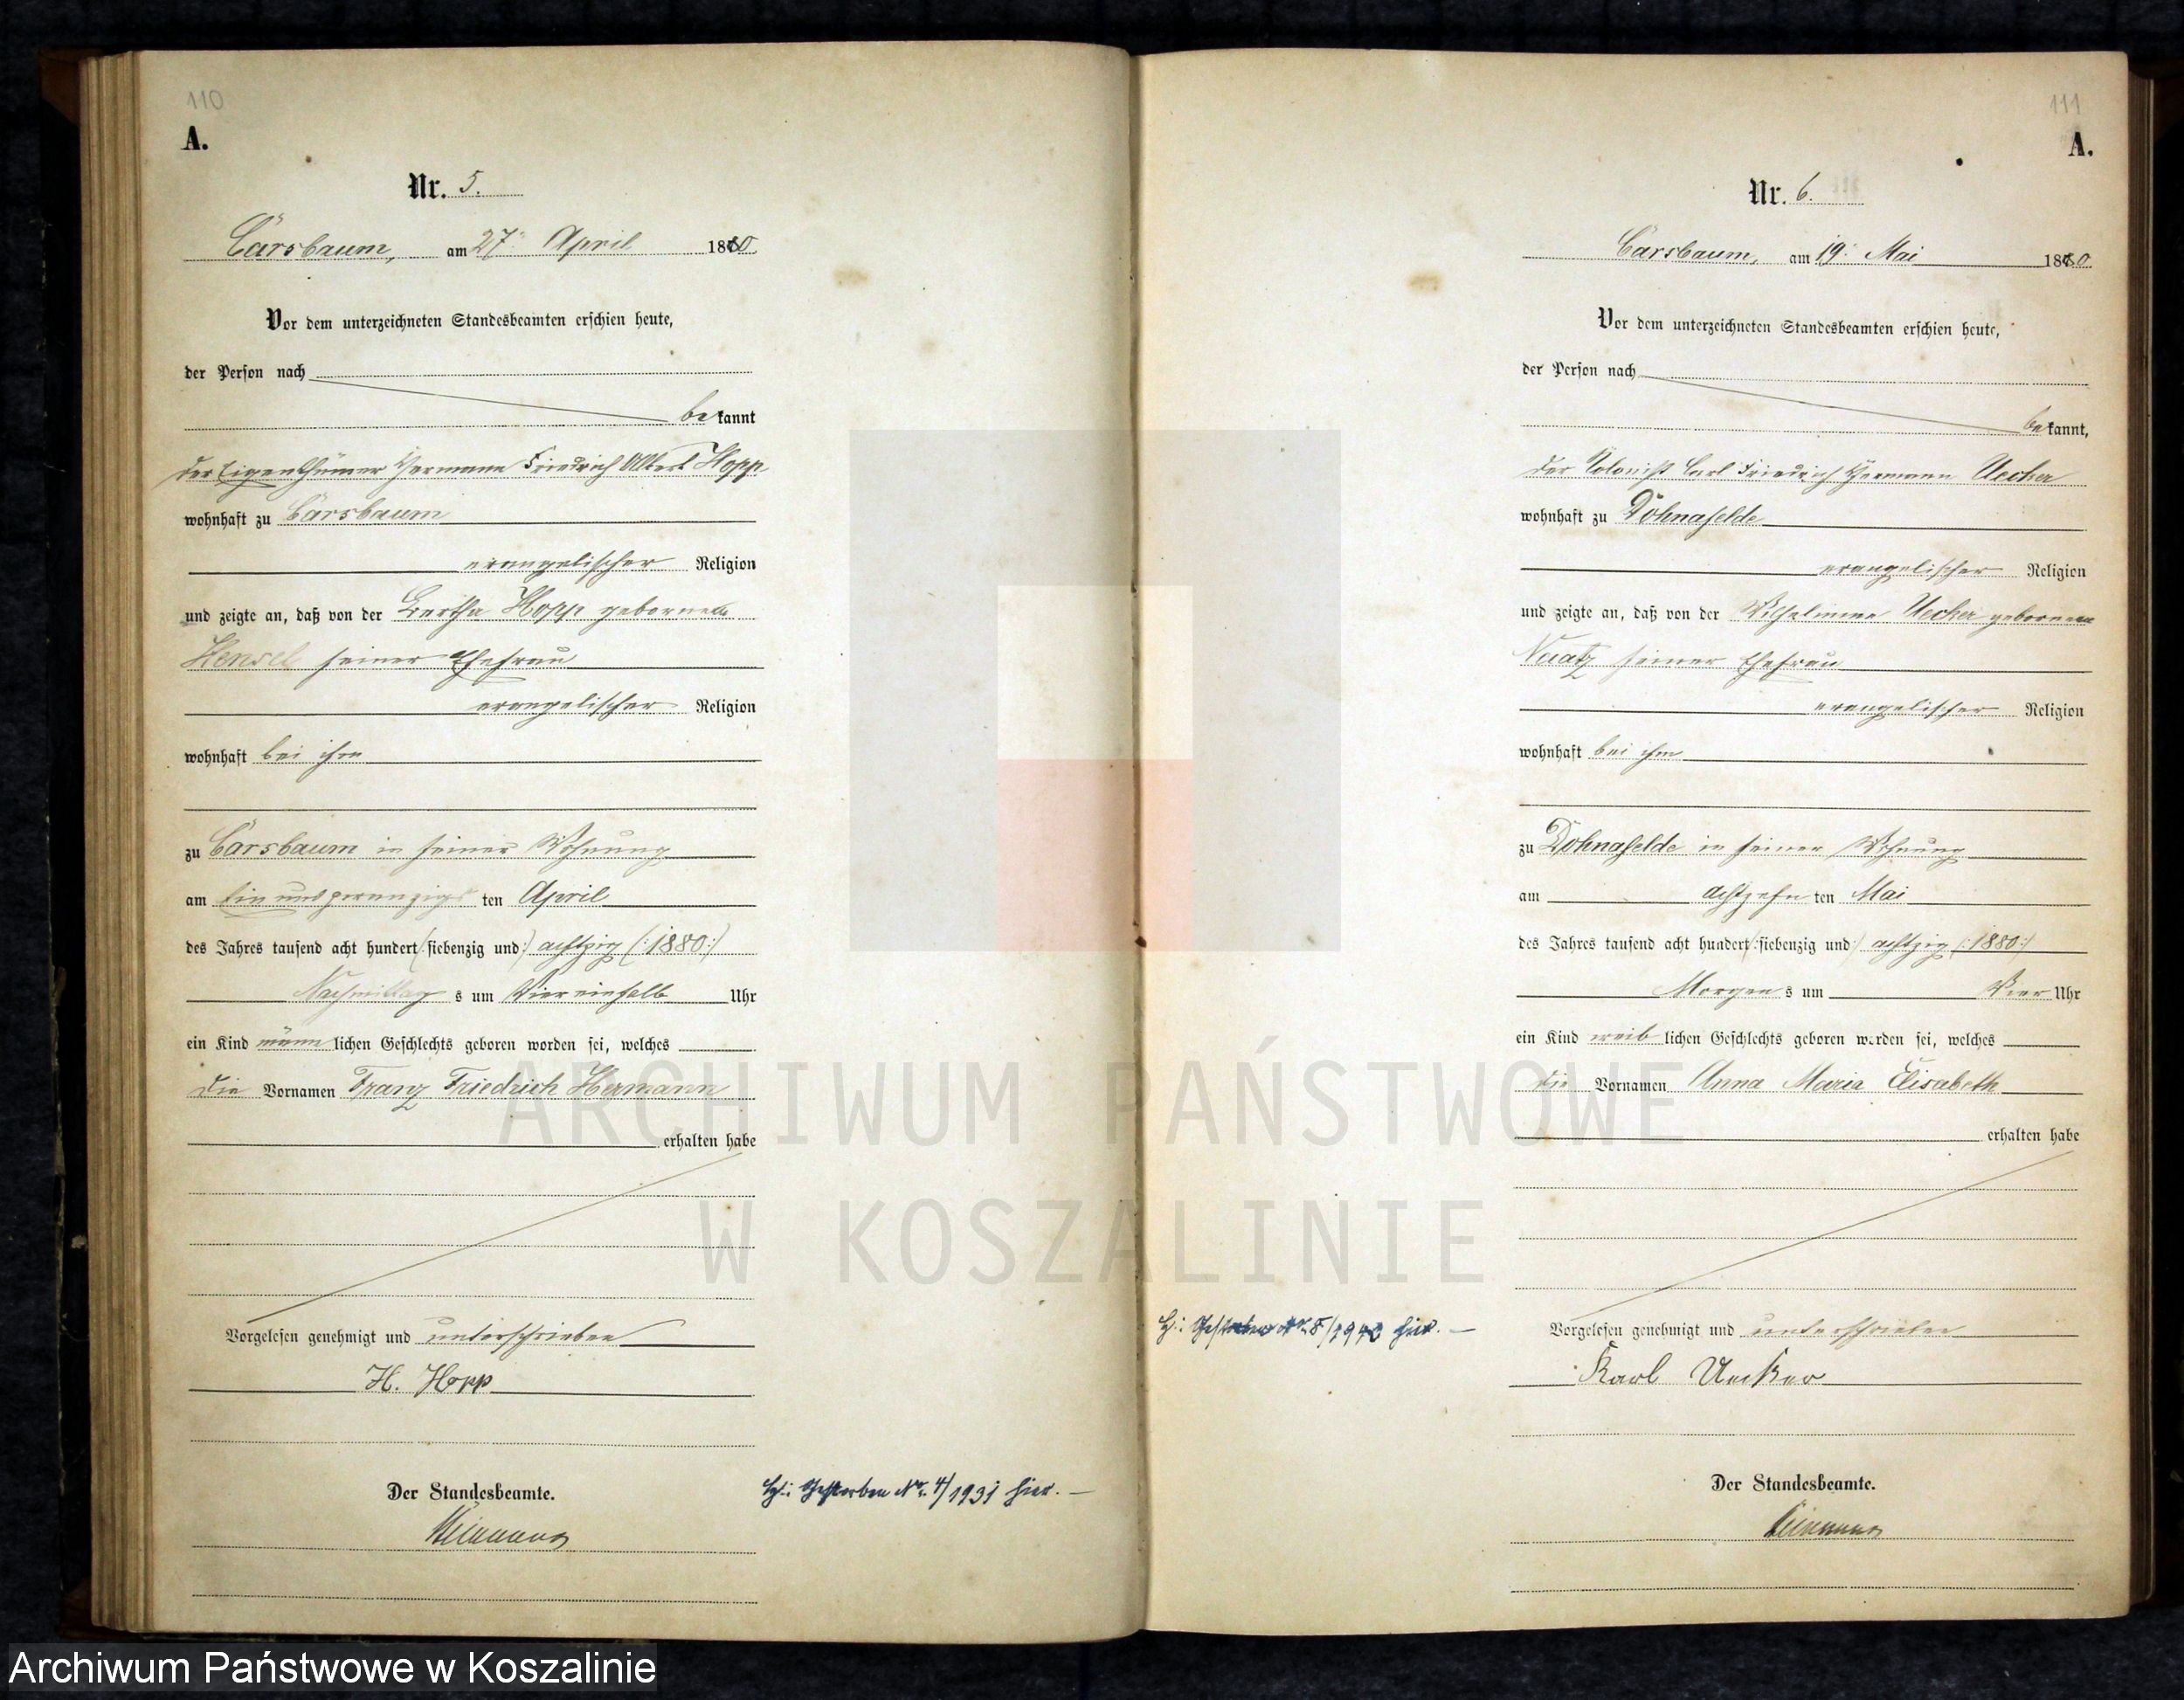 110
A.
Nr. 5.
Carsbaum, am 27. April 1880
Vor dem unterzeichneten Standesbeamten erschien heute,
der Person nach
bekannt
der Eigenthümer Hermann Friedrich Albert Hopp
wohnhaft zu Carsbaum
evangelischer Religion
und zeigte an, daß von der Bertha Hopp gebornen
Hensel seiner Ehefrau
evangelischer Religion
wohnhaft bei ihm
zu Carsbaum in seiner Wohnung
am ein und zwanzigsten April
des Jahres tausend acht hundert (:siebenzig und:) achtzig (:1880:)
Nachmittags um Vier einhalb Uhr
ein Kind männlichen Geschlechts geboren worden sei, welches
die Vornamen Franz Friedrich Hermann
erhalten habe
Vorgelesen genehmigt und unterschrieben
H. Hopp
Der Standesbeamte.
Gestorben Nr. 4/1931 hier.
111
A.
Nr. 6.
Carsbaum, am 19. Mai 1880
Vor dem unterzeichneten Standesbeamten erschien heute,
der Person nach
bekannt,
der Kolonist Carl Friedrich Hermann Uecker
wohnhaft zu Dohnafelde
evangelischer Religion
und zeigte an, daß von der Wilhelmine Uecker geborenen
Naatz seiner Ehefrau
evangelischer Religion
wohnhaft bei ihm
zu Dohnafelde in seiner Wohnung
am achtzehnten Mai
des Jahres tausend acht hundert (:siebenzig und:) achtzig (:1880:)
Morgens um Vier Uhr
ein Kind weiblichen Geschlechts geboren worden sei, welches
die Vornamen Anna Maria Elisabeth
erhalten habe
Gestorben Nr. 8/19 hier.
Vorgelesen genehmigt und unterschrieben
Karl Uecker
Der Standesbeamte.
ARCHIWUM PAŃSTWOWE
W KOSZALINIE
Archiwum Państwowe w Koszalinie